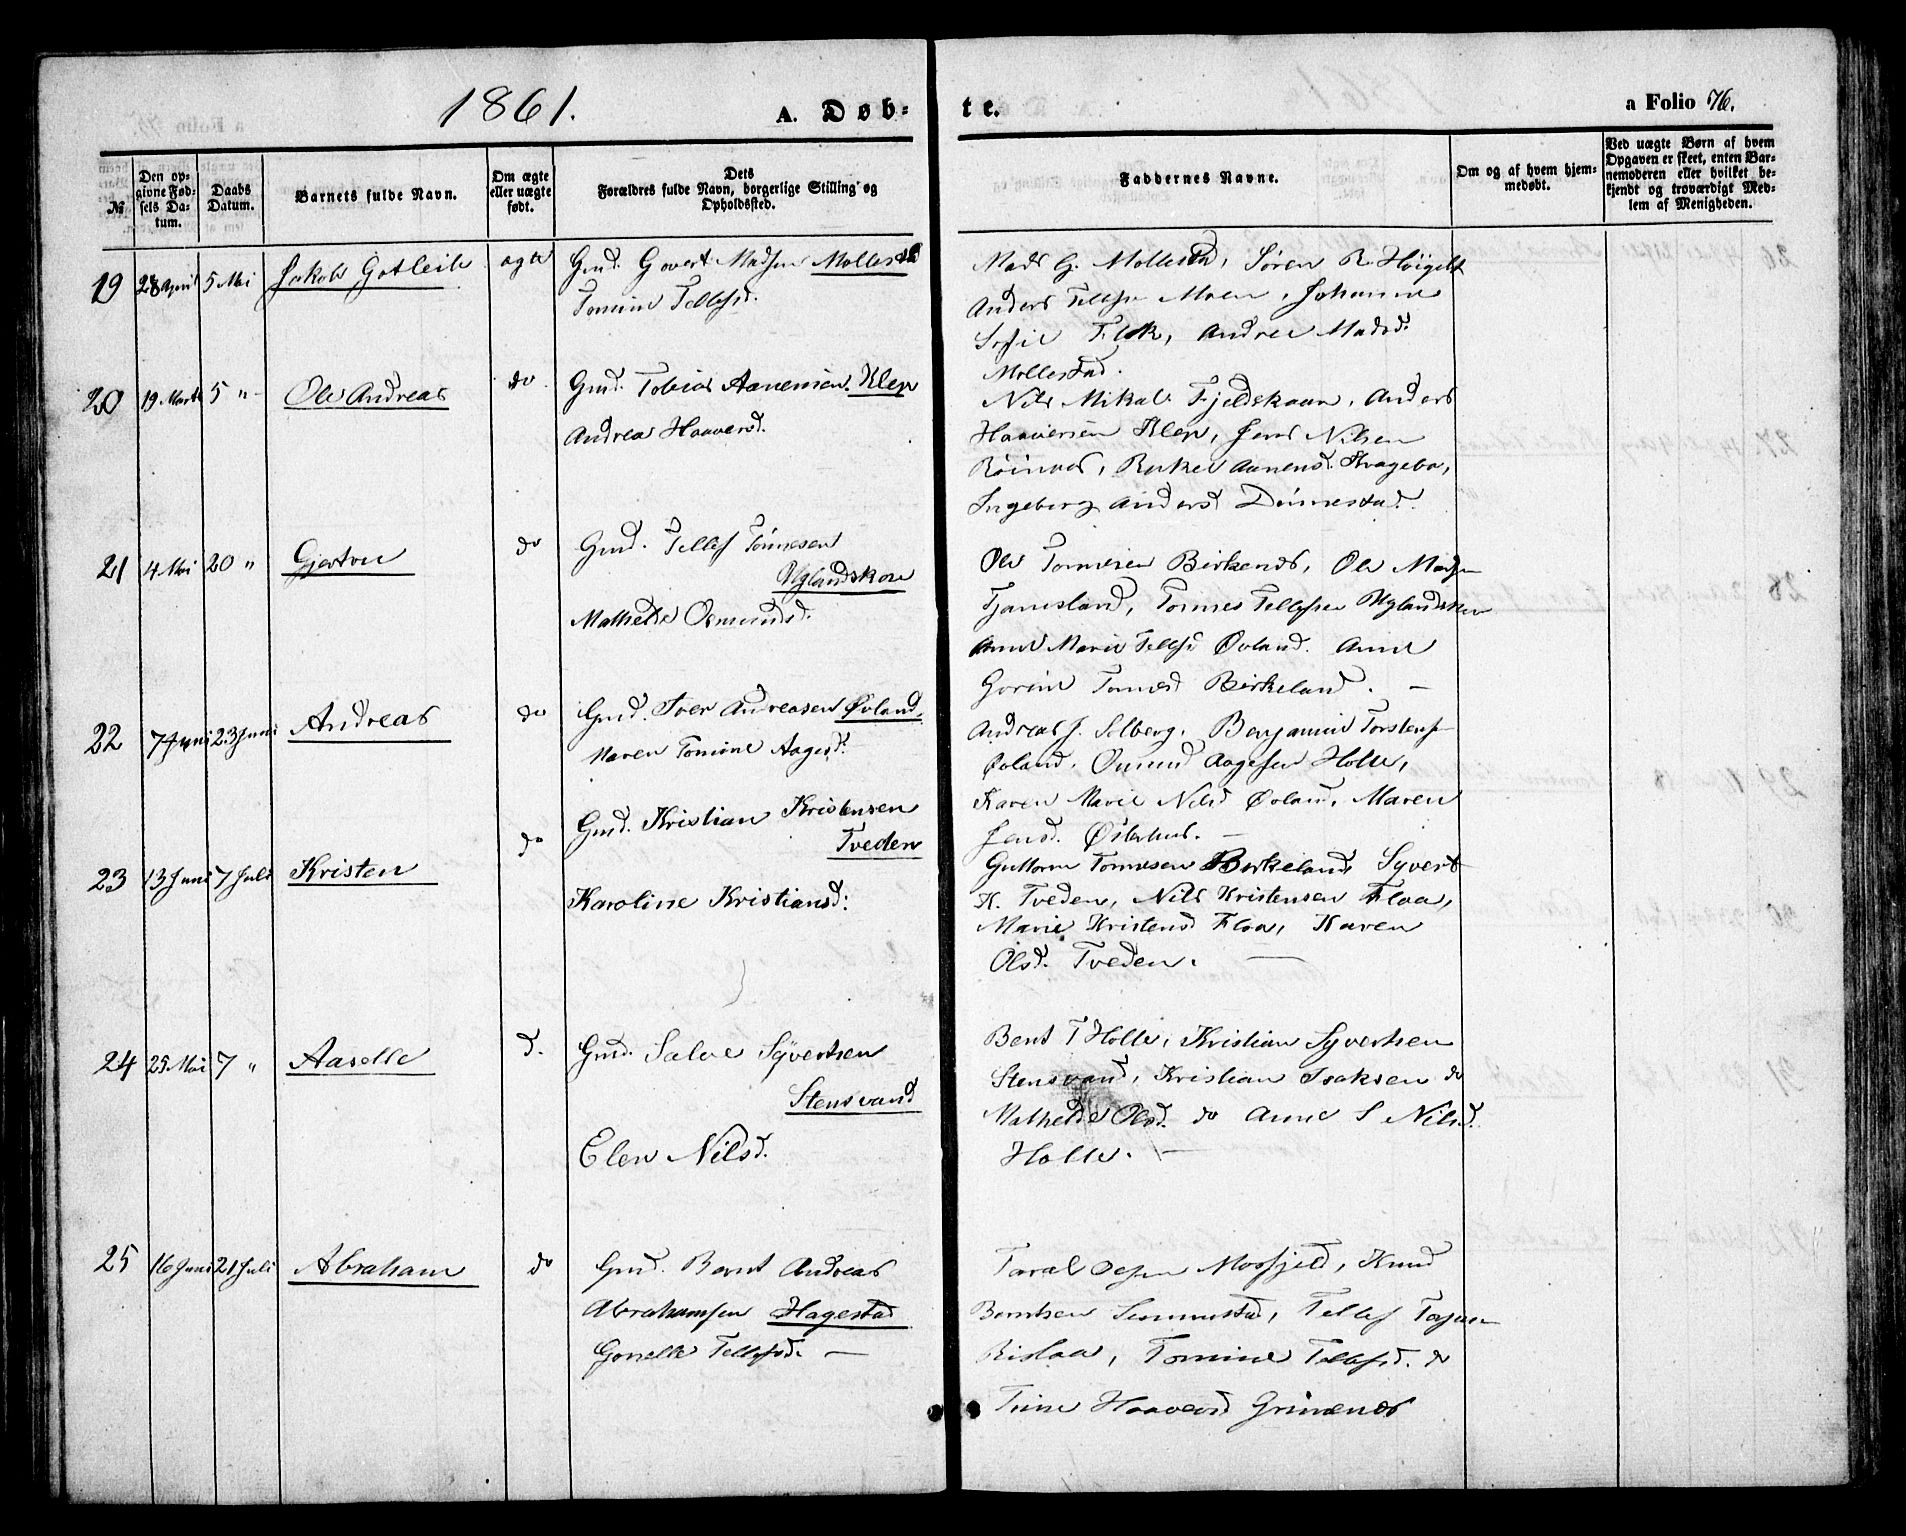 1861.
A. Døb-
te.
a Folio 76.
№
Den op-
givne Fød-
sels Da-
tum.
Daabs
Datum.
Barnets fulde Navn.
Om ægte
eller uægte
født.
Dets
Forældres fulde Navn, borgerlige Stilling og
Opholdssted.
Faddernes Navne.
Om og af hvem hjem-
medøbt.
Ved uægte Børn af hvem
Opgaven er skeet, enten Bar-
nemoderen eller hvilket be-
kjendt og troværdigt Med-
lem af Menigheden.
19 28 April 5 Mai Jakob Gotleib ægte Gmd. Govert Madsen Mollestd
Tomine Tellefsd.
Mads G. Mollestd, Søren R.
Anders Tellefsen Moen, Johanne
Sofie Flak, Andrea Madsd.
Mollestad.
20 19 Marts 5 " Ole Andreas do Gmd. Tobias Aanensen Klep
Andrea Haaversd.
Nils Mikal Fjeldskaar, Anders
Haaversen Klep, Jens Nilsen
Aanensd. Krageboe,
Ingeborg Andersd Dønnestad.
21 4 Mai 20 " Gjertru do Gmd. Tellef Tønnesen
Uglandskore
Mathelde Osmundsd.
Ole Tønnesen Birkenes, Ole Madsen
Tjamsland, Tønnes Tellefsen Uglandskore
Anne Marie Tellefsd Øvland. Anne
Gorine Tønnesd Birkeland. —
22 7 Juni 23 Juni Andreas do Gmd. Iver Andreasen Øvland.
Maren Tomine Aagesd.
Andreas J. Solberg. Benjamin Torstens
Øvland. Omund Aagesen Holte,
Karen Marie Nilsd Øvland, Maren
Jensd. Østerhus. —
23 13 Juni 7 Juli Kristen do Gmd. Kristian Kristensen
Tveden
Karoline Kristiansd:
Guttorm Tønnesen Birkeland, Syvert
K. Tveden, Nils Kristensen Floa,
Marie Kristensd Floa, Karen
Olsd. Tveden. —
24 25 Mai 7 " Aaselle d. Gmd. Salve Syvertsen
Stensvand
Elen Nilsd.
Bent T Holte, Kristian Syvertsen
Stensvand, Kristian Isaksen do
Mathelde Olsd. do Anne S Nilsd.
Holte. —
25 16 Juni 21 Juli Abraham do Gmd. Bernt Andreas
Abrahamsen Hagestad
Gonelle Tellefsd. —
Taral Mosfjeld, Knud
Berntsen Senumstad, Tellef
Rislaa, Tomine Tellefsd. do
Tine Haaversd Grimenes